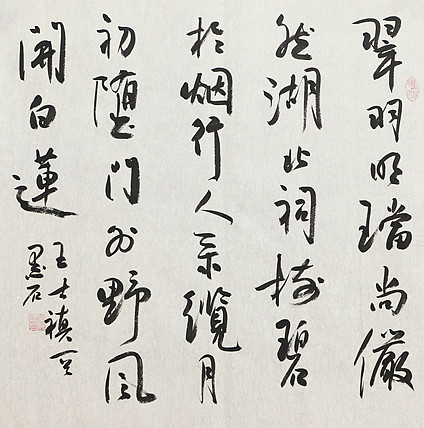 翠羽明璫尚儼
然湖云祠樹碧
於烟行人系纜月
初墮門外野風
開白蓮
王士禛
墨石